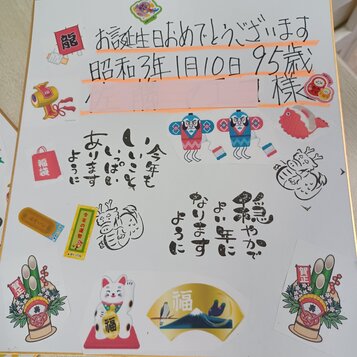 お誕生日おめでとうございます
昭和3年1月10日 95歳
様
龍
福袋
今年も
いいこと
いっぱい
あります
ように
穏やかで
よい年に
なります
ように
福
福
賀正
賀正